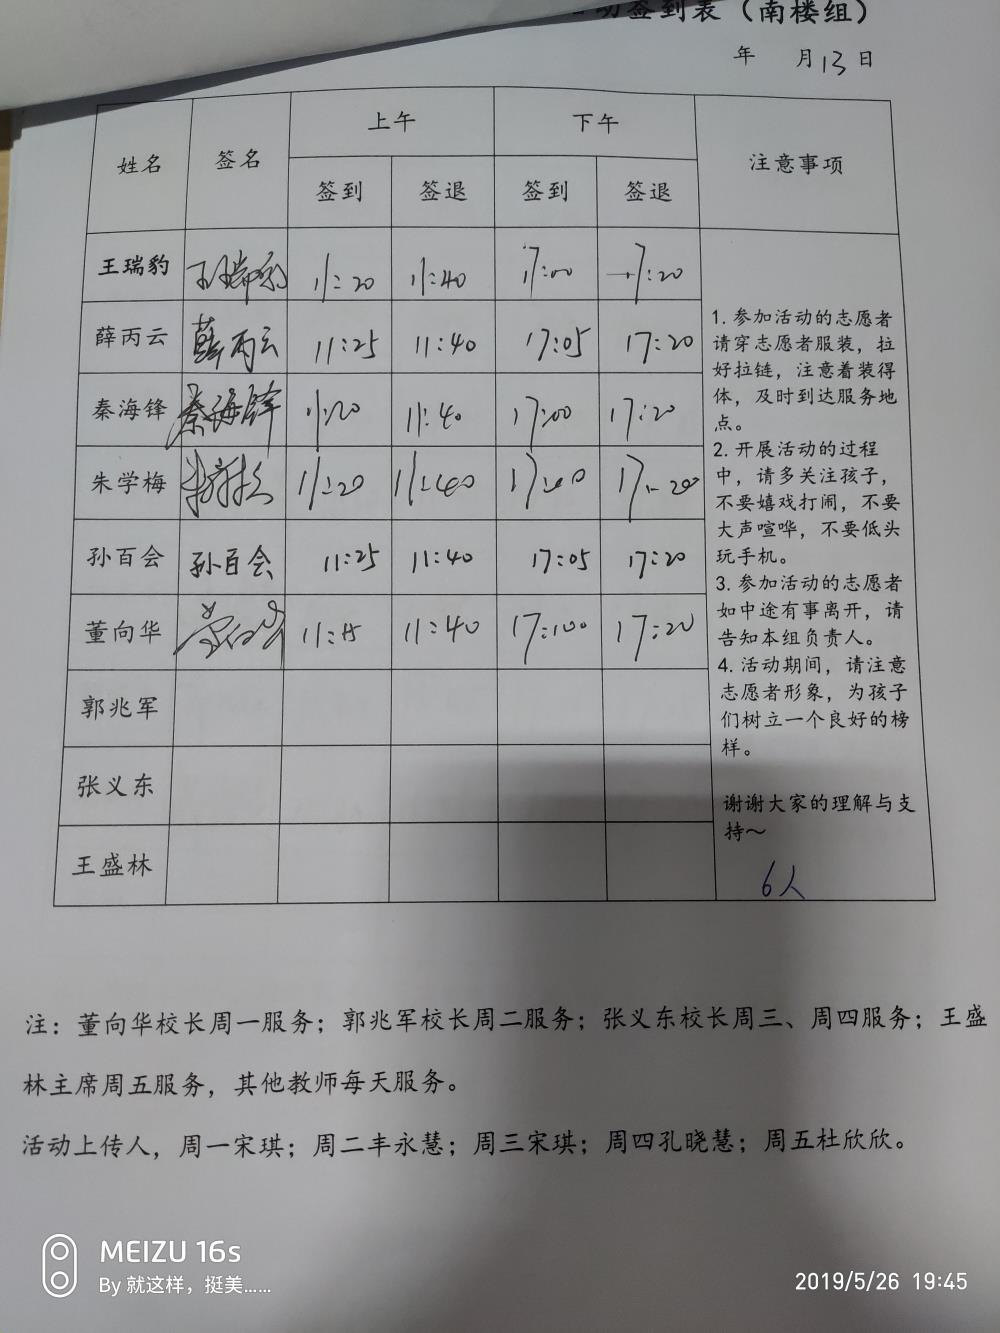 动签到表（南楼组）
年 月13日
姓名 签名 上午 下午 注意事项
签到 签退 签到 签退
王瑞豹 王瑞豹 11:20 11:40 17:00 17:20
薛丙云 薛丙云 11:25 11:40 17:05 17:20
秦海锋 秦海锋 11:20 11:40 17:00 17:20
朱学梅 11:20 11:40 17:00 17:20
孙百会 孙百会 11:25 11:40 17:05 17:20
董向华 董向华 11:40 17:20
郭兆军
张义东
王盛林
1. 参加活动的志愿者
请穿志愿者服装，拉
好拉链，注意着装得
体，及时到达服务地
点。
2. 开展活动的过程
中，请多关注孩子，
不要嬉戏打闹，不要
大声喧哗，不要低头
玩手机。
3. 参加活动的志愿者
如中途有事离开，请
告知本组负责人。
4. 活动期间，请注意
志愿者形象，为孩子
们树立一个良好的榜
样。
谢谢大家的理解与支
持～
6人
注：董向华校长周一服务；郭兆军校长周二服务；张义东校长周三、周四服务；王盛
林主席周五服务，其他教师每天服务。
活动上传人，周一宋琪；周二丰永慧；周三宋琪；周四孔晓慧；周五杜欣欣。
MEIZU 16s
By 就这样，挺美……
2019/5/26 19:45